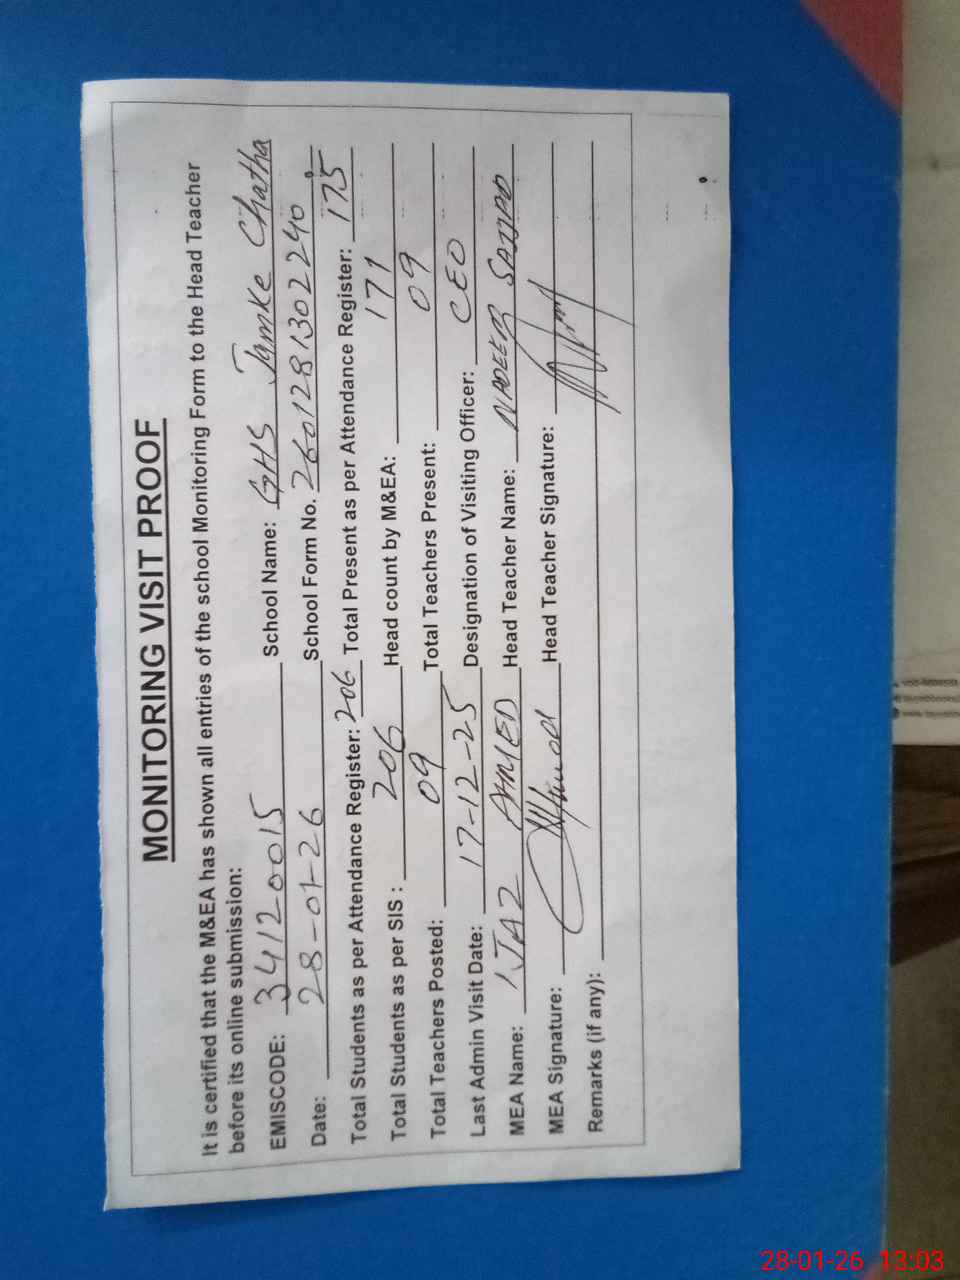 MONITORING VISIT PROOF
It is certified that the M&EA has shown all entries of the school Monitoring Form to the Head Teacher
before its online submission:
EMISCODE: 34120015 School Name: GHS Jamke Chatha
Date: 28-01-26 School Form No. 2601281302240
Total Students as per Attendance Register: 206 Total Present as per Attendance Register: 175
Total Students as per SIS : 206 Head count by M&EA: 171
Total Teachers Posted: 09 Total Teachers Present: 09
Last Admin Visit Date: 17-12-25 Designation of Visiting Officer: CEO
MEA Name: IJAZ AHMED Head Teacher Name: NADEER SAJJAD
MEA Signature: Head Teacher Signature:
Remarks (if any):
28-01-26 13:03